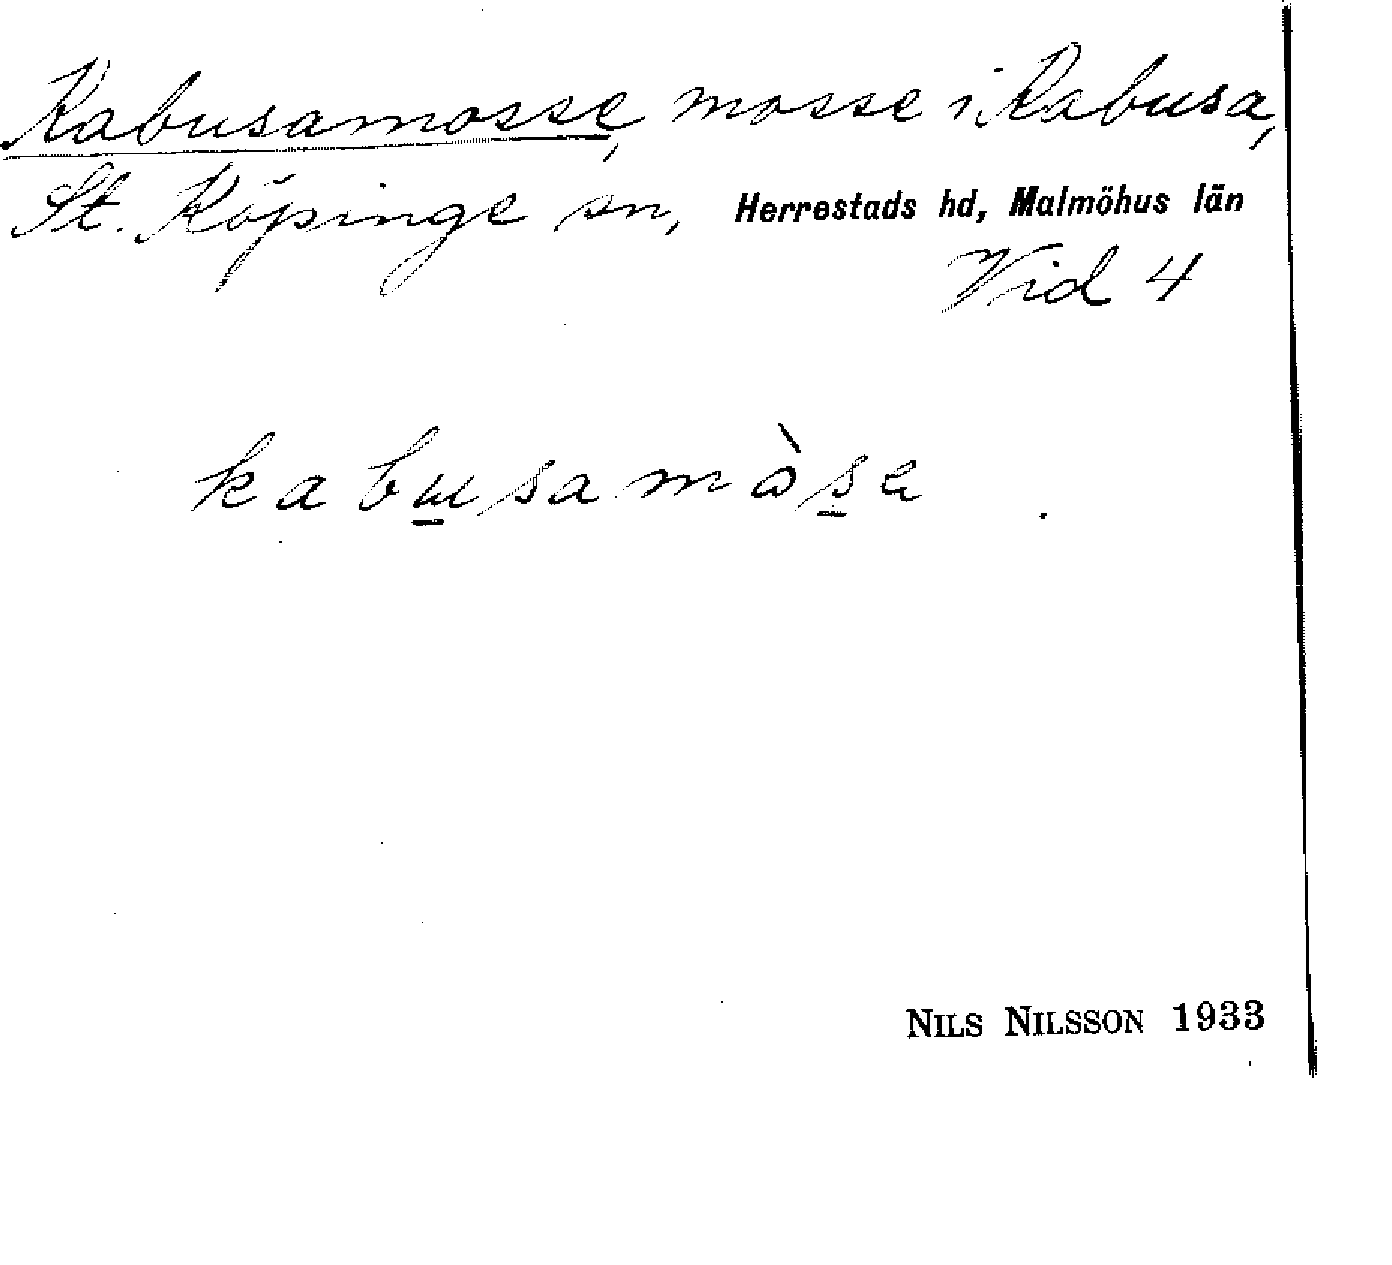 Kabusamosse, mosse i Kabusa,
St. Köpinge sn, Herrestads hd, Malmöhus län
Vid 4
kabu̲samòs̲a
NILS NILSSON 1933